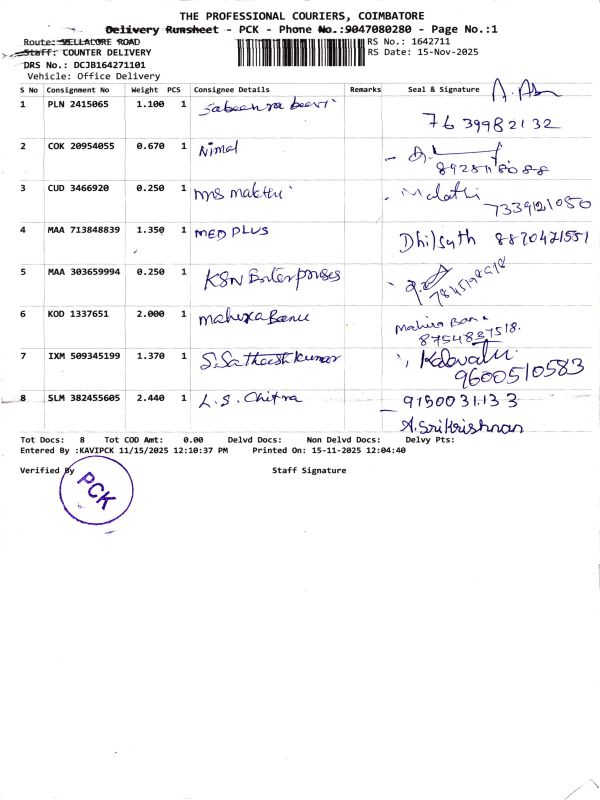 THE PROFESSIONAL COURIERS, COIMBATORE
Delivery Runsheet - PCK - Phone No.:9047080280 - Page No.:1
Route: VELLALORE ROAD RS No.: 1642711
Staff: COUNTER DELIVERY RS Date: 15-Nov-2025
DRS No.: DCJB164271101
Vehicle: Office Delivery
S No Consignment No Weight PCS Consignee Details Remarks Seal & Signature
1 PLN 2415065 1.100 1 Sabeenra beevi
7639982132
2 COK 20954055 0.670 1 Nimal
3 CUD 3466920 0.250 1 Malathi
7339121050
4 MAA 713848839 1.350 1 MED PLUS Dhilsath 8820421551
5 MAA 303659994 0.250 1 KSN Enterprises
6 KOD 1337651 2.000 1 MahiraBanu Mahira Banu
8754887518.
7 IXM 509345199 1.370 1 S.Satheeshkumar Kalavathi
9600510583
8 SLM 382455605 2.440 1 L.S. Chitra 9150031133
A.Srikrishnan
Tot Docs: 8 Tot COD Amt: 0.00 Delvd Docs: Non Delvd Docs: Delvy Pts:
Entered By :KAVIPCK 11/15/2025 12:10:37 PM Printed On: 15-11-2025 12:04:40
Verified By Staff Signature
PCK